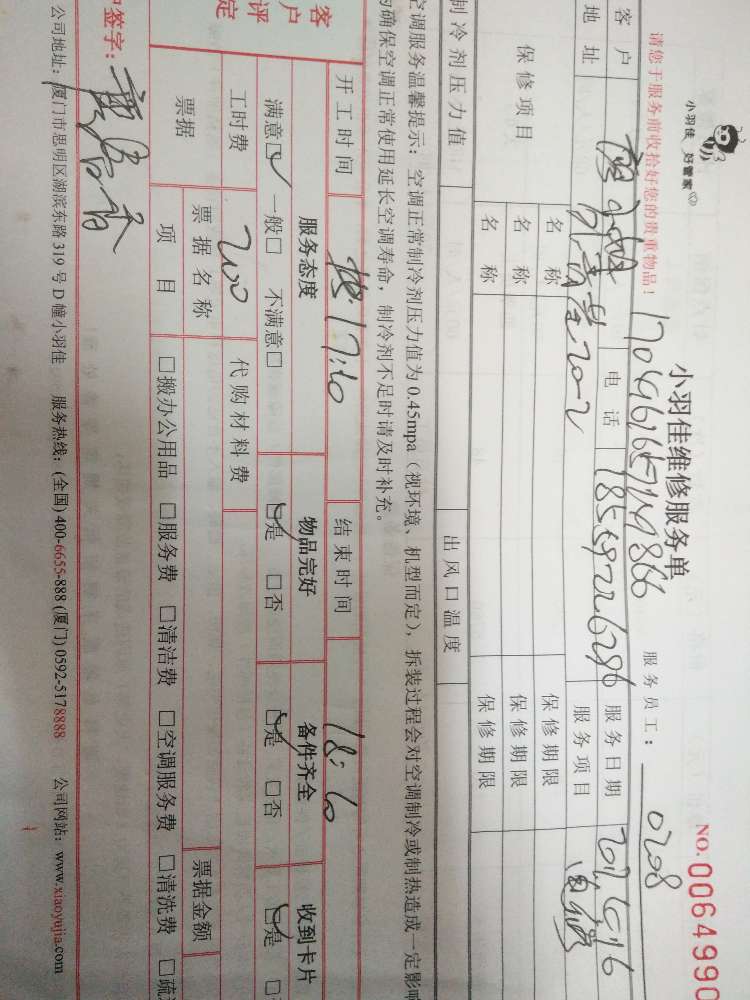 小羽佳 好管家
小羽佳维修服务单
NO. 0064990
请您于服务前收拾好您的贵重物品! 服务员工: 0208
客户 电话 服务日期
地址 服务项目
保修项目 名称 保修期限
名称 保修期限
名称 保修期限
制冷剂压力值 出风口温度
空调服务温馨提示: 空调正常制冷剂压力值为0.45mpa (视环境、机型而定), 拆装过程会对空调制冷或制热造成一定影响
为确保空调正常使用延长空调寿命, 制冷剂不足时请及时补充。
开工时间 17:10 结束时间 18:10
客户评定 服务态度 物品完好 备件齐全 收到卡片
满意□ 一般□ 不满意□ □是 □否 □是 □否 □是
工时费 200 代购材料费
票据 票据名称 票据金额
项目 □搬办公用品 □服务费 □清洁费 □空调服务费 □清洗费
签字:
公司地址: 厦门市思明区湖滨东路319号D幢小羽佳 服务热线: (全国) 400-6655-888 (厦门) 0592-5178888 公司网站: www.xiaoyujia.com